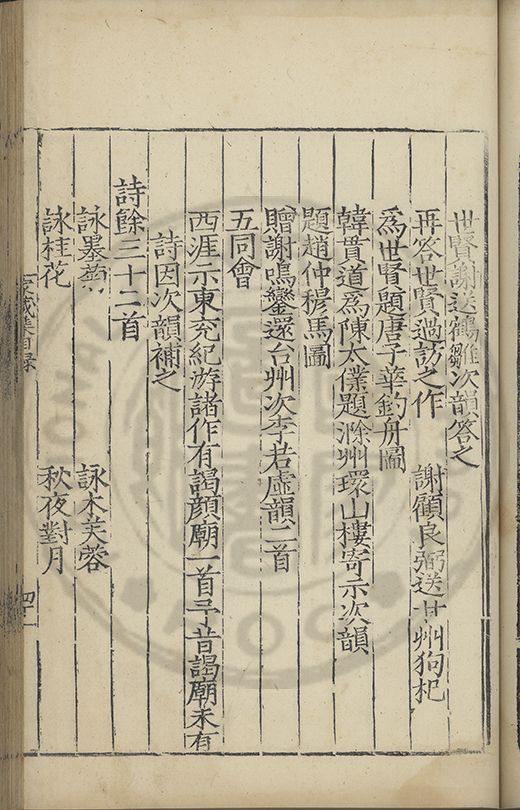 世賢謝送鶴雛次韻答之
再答世賢過訪之作　謝顧良弼送甘州狗杞
為世賢題唐子華釣舟圖
韓貫道為陳太僕題滁州環山樓寄示次韻
題趙仲穆馬圖
贈謝鳴鑾還台州次李若虛韻二首
五同會
西涯示東兖紀游諸作有謁顔廟一首予昔謁廟未有
詩因次韻補之
詩餘三十二首
詠墨菊　詠木芙蓉
詠桂花　秋夜對月
家藏集目録